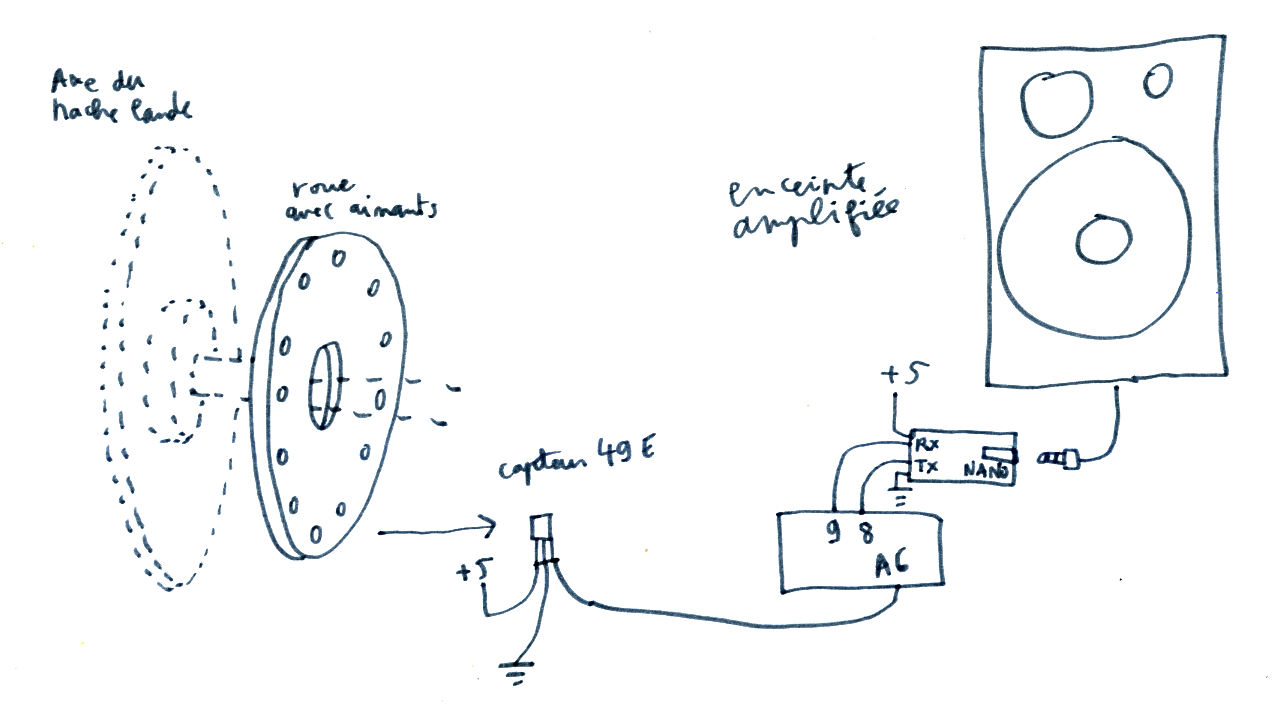 Axe du
hache lande
roue
avec aimants
enceinte
amplifiée
capteur 49 E
+5
+5
Rx
Tx
NANO
9 8
A6